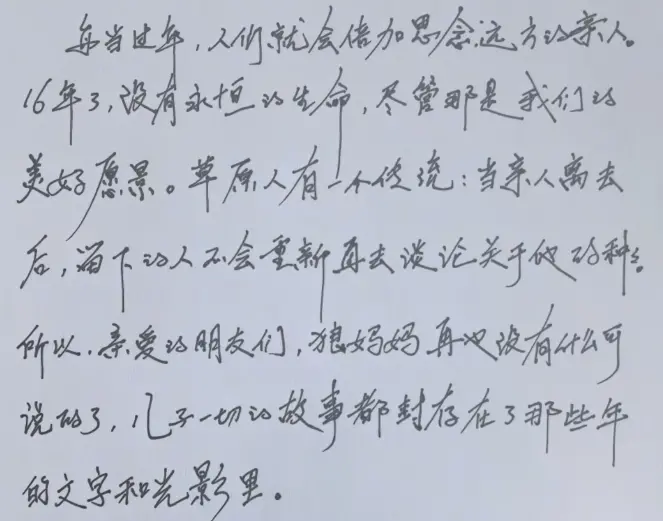 每当过年，人们就会倍加思念远方的亲人。
16年了，没有永恒的生命，尽管那是我们的
美好愿景。草原人有一个传统：当亲人离去
后，留下的人不会重新再去谈论关于他的种种。
所以，亲爱的朋友们，狼妈妈再也没有什么可
说的了，儿子一切的故事都封存在了那些年
的文字和光影里。